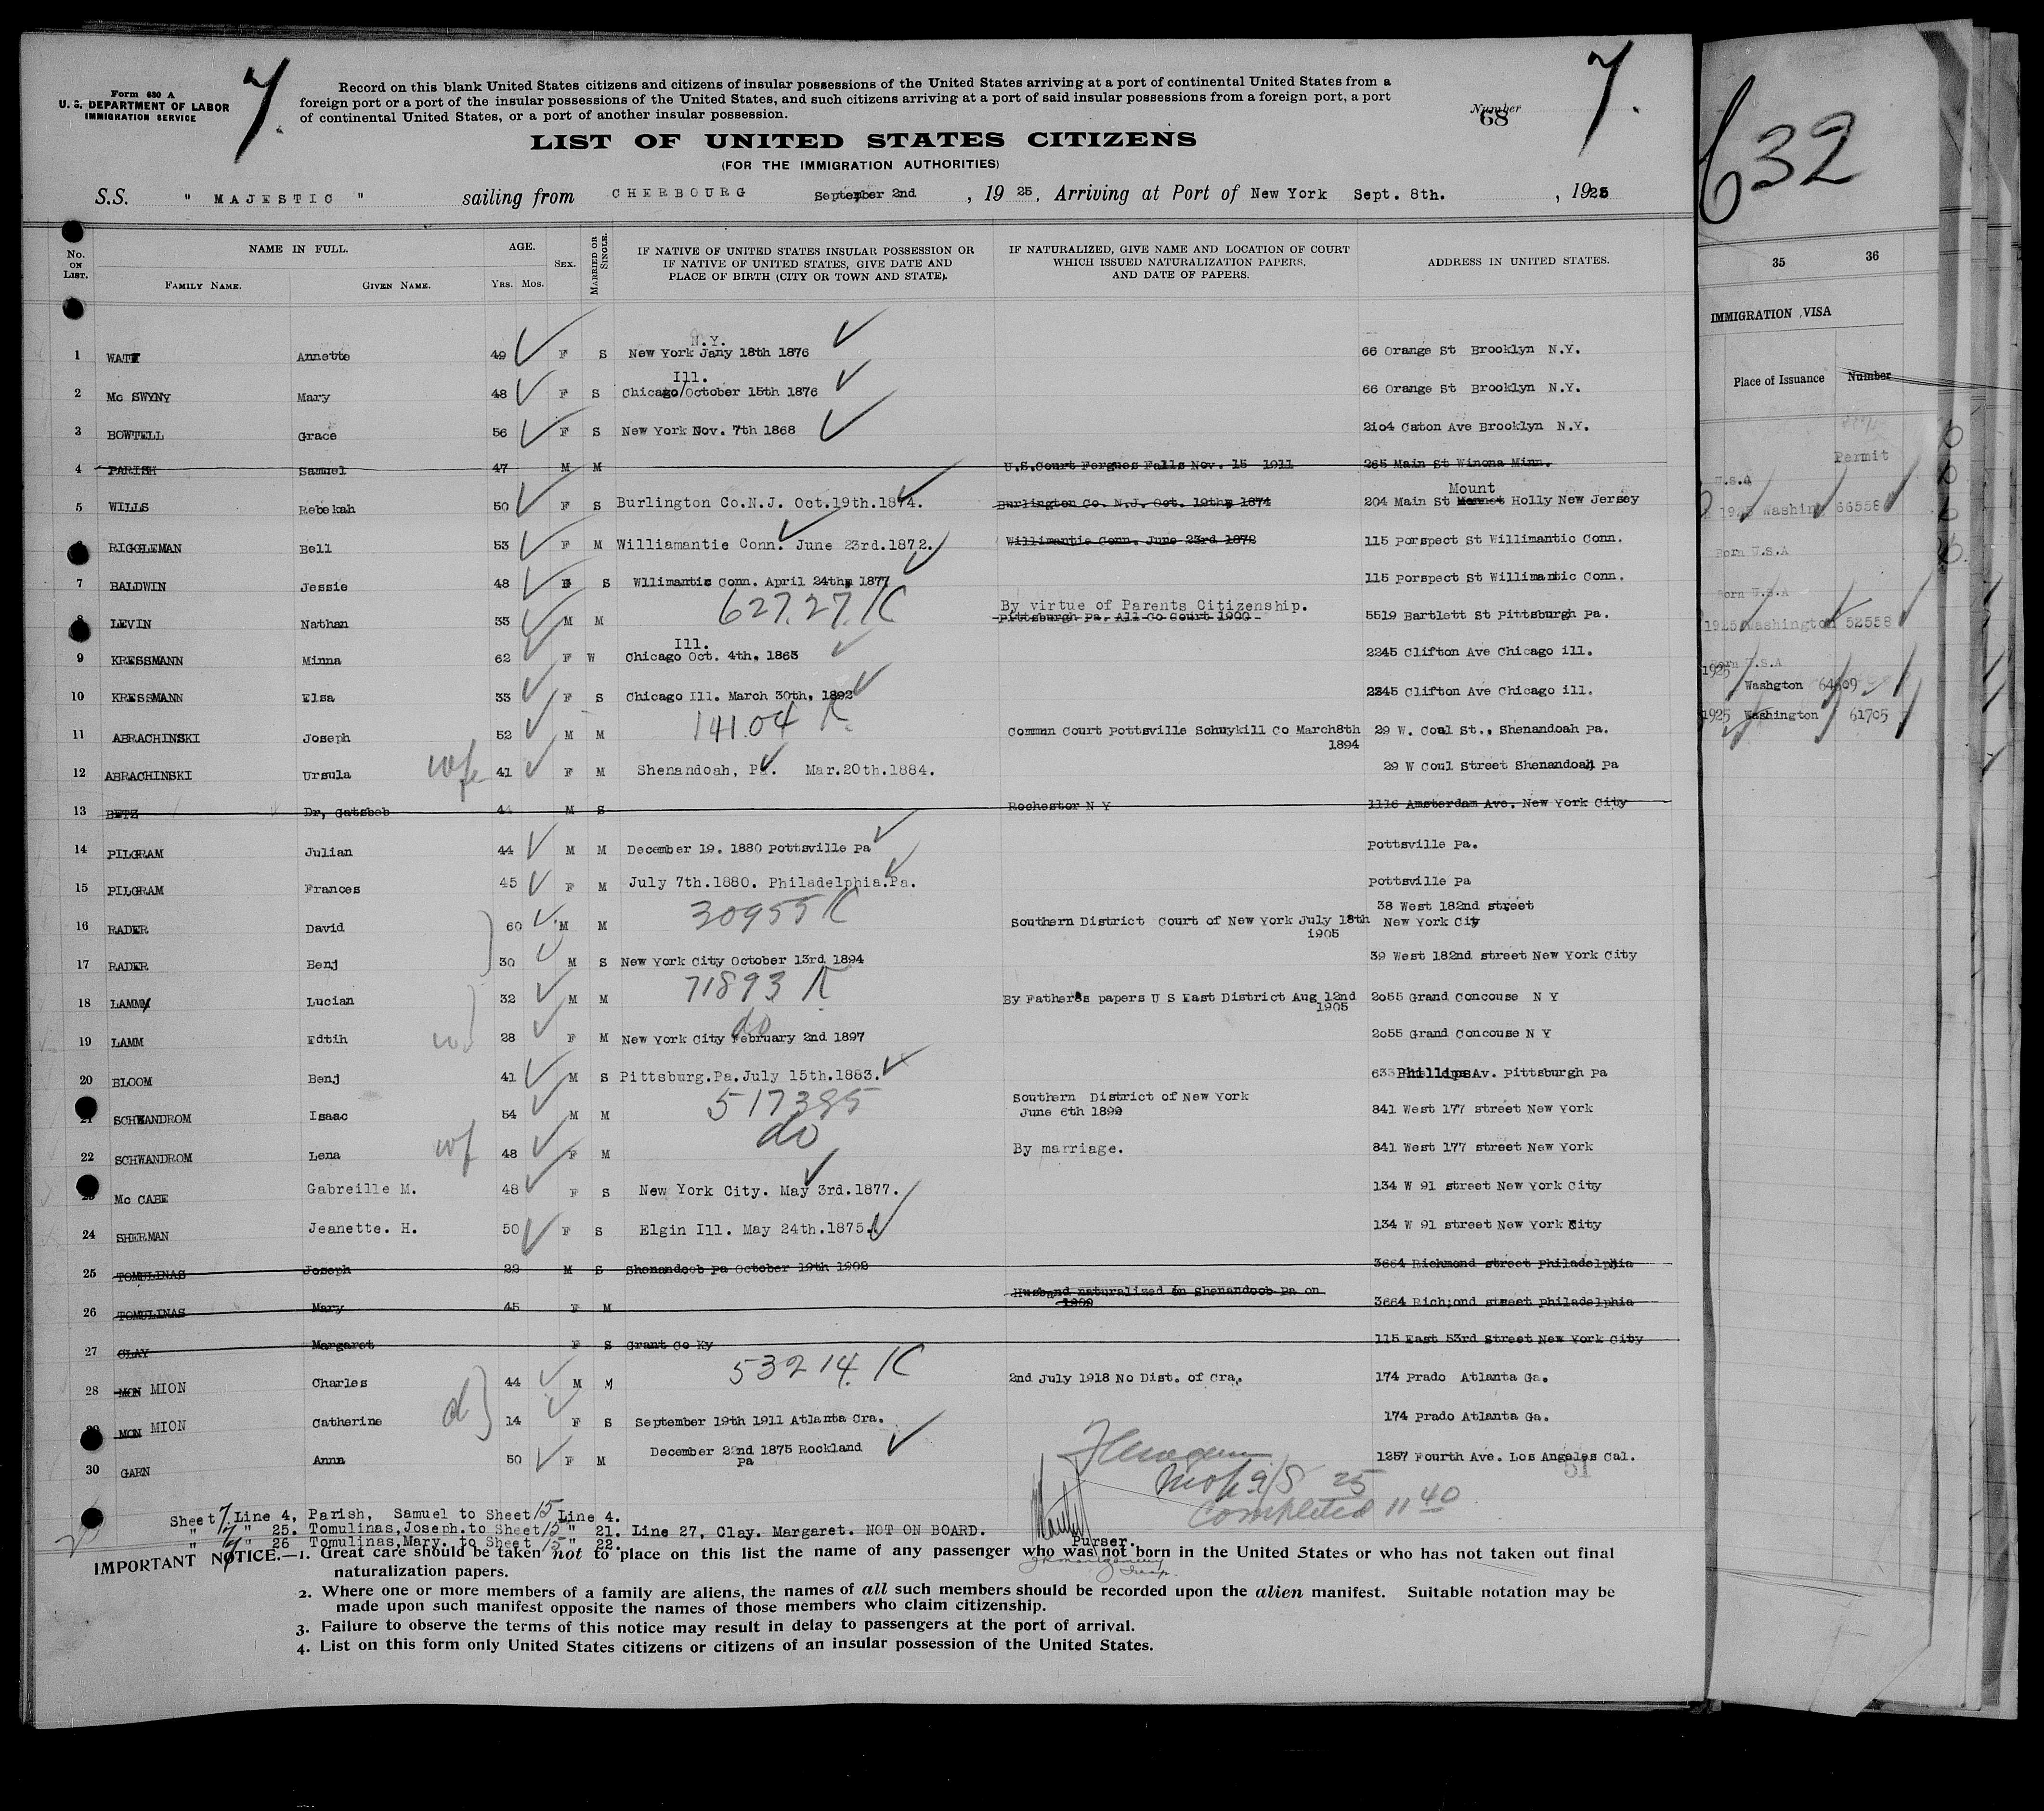 7.
7.
Form 630 A
U. S. DEPARTMENT OF LABOR
IMMIGRATION SERVICE
Record on this blank United States citizens and citizens of insular possessions of the United States arriving at a port of continental United States from a
foreign port or a port of the insular possessions of the United States, and such citizens arriving at a port of said insular possessions from a foreign port, a port
of continental United States, or a port of another insular possession.
Number
68
LIST OF UNITED STATES CITIZENS
(FOR THE IMMIGRATION AUTHORITIES)
S.S. " MAJESTIC " sailing from CHERBOURG September 2nd, 1925, Arriving at Port of New York Sept. 8th., 1925
No. ON LIST. NAME IN FULL. AGE. SEX. MARRIED OR SINGLE. IF NATIVE OF UNITED STATES INSULAR POSSESSION OR IF NATIVE OF UNITED STATES, GIVE DATE AND PLACE OF BIRTH (CITY OR TOWN AND STATE). IF NATURALIZED, GIVE NAME AND LOCATION OF COURT WHICH ISSUED NATURALIZATION PAPERS, AND DATE OF PAPERS. ADDRESS IN UNITED STATES.
FAMILY NAME. GIVEN NAME. YRS. MOS.
N.Y.
1 WATT Annette 49 F S New York Jany 18th 1876 66 Orange St Brooklyn N.Y.
Ill.
2 Mc SWYNY Mary 48 F S Chicago/October 15th 1876 66 Orange St Brooklyn N.Y.
3 BOWTELL Grace 56 F S New York Nov. 7th 1868 2104 Caton Ave Brooklyn N.Y.
4 PARISH Samuel 47 M M U.S.Court Fergues Falls Nov. 15 1911 265 Main St Winona Minn.
Mount
5 WILLS Rebekah 50 F S Burlington Co.N.J. Oct.19th.1874. Burlington Co. N.J. Oct. 19th, 1874 204 Main St Holly New Jersey
RIGGLEMAN Bell 53 F M Williamantie Conn. June 23rd.1872. Willimantie Conn. June 23rd 1872 115 Porspect St Willimantic Conn.
7 BALDWIN Jessie 48 F S Wllimantic Conn. April 24th, 1877 115 Porspect St Willimantic Conn.
62727. K By virtue of Parents Citizenship.
8 LEVIN Nathan 33 M M Pittsburgh Pa. All Co Court 1900 5519 Bartlett St Pittsburgh Pa.
Ill.
9 KRESSMANN Minna 62 F W Chicago Oct. 4th. 1863 2245 Clifton Ave Chicago ill.
10 KRESSMANN Elsa 33 F S Chicago Ill. March 30th, 1892 2245 Clifton Ave Chicago ill.
14104 K.
11 ABRACHINSKI Joseph 52 M M Commn Court Pottsville Schuykill Co March8th 29 W. Coal St., Shenandoah Pa.
1894
12 ABRACHINSKI Ursula wfe 41 F M Shenandoah, Pa. Mar.20th.1884. 29 W Coul Street Shenandoah Pa
13 BETZ Dr, Gatsbeb 44 M S Rochester N Y 1116 Amsterdam Ave. New York City
14 PILGRAM Julian 44 M M December 19. 1880 Pottsville Pa Pottsville Pa.
15 PILGRAM Frances 45 F M July 7th.1880. Philadelphia.Pa. Pottsville Pa
30955 K 38 West 182nd street
16 RADER David 60 M M Southern District Court of New York July 18th New York City
1905
17 RADER Benj 30 M S New York City October 13rd 1894 39 West 182nd street New York City
71893 K
18 LAMMY Lucian 32 M M By Father's papers U S East District Aug 12nd 2055 Grand Concouse N Y
1905
do
19 LAMM Edtih 28 F M New York City February 2nd 1897 2055 Grand Concouse N Y
20 BLOOM Benj 41 M S Pittsburg.Pa.July 15th.1883. 633 Phillips Av. Pittsburgh Pa
517395 Southern District of New York
21 SCHWANDROM Isaac 54 M M June 6th 1899 841 West 177 street New York
do
22 SCHWANDROM Lena wf 48 F M By marriage. 841 West 177 street New York
23 Mc CABE Gabreille M. 48 F S New York City. May 3rd.1877. 134 W 91 street New York City
24 SHERMAN Jeanette. H. 50 F S Elgin Ill. May 24th.1875. 134 W 91 street New York City
25 TOMULINAS Joseph 22 M S Shenandoob Pa October 19th 1902 3664 Richmond street Philadelphia
Husband naturalized in Shenandoob Pa on
26 TOMULINAS Mary 45 F M 1900 3664 Rich;ond street Philadelphia
27 CLAY Margaret F S Grant Co Ky 115 East 53rd Street New York City
53214. K
28 MON MION Charles 44 M M 2nd July 1918 No Dist. of Cra. 174 Prado Atlanta Ga.
MON MION Catherine d 14 F S September 19th 1911 Atlanta Cra. 174 Prado Atlanta Ga.
30 GARN Anna 50 F M December 22nd 1875 Rockland 1257 Fourth Ave. Los Angeles Cal.
Pa
51
9/8 25
Completed 11 40
Sheet 7. Line 4, Parish, Samuel to Sheet 15 Line 4.
" 7 " 25. Tomulinas,Joseph.to Sheet 15 " 21. Line 27, Clay. Margaret. NOT ON BOARD.
" 7 " 26 Tomulinas,Mary. to Sheet 15 " 22.
Purser.
IMPORTANT NOTICE.—1. Great care should be taken not to place on this list the name of any passenger who was not born in the United States or who has not taken out final
naturalization papers.
2. Where one or more members of a family are aliens, the names of all such members should be recorded upon the alien manifest. Suitable notation may be
made upon such manifest opposite the names of those members who claim citizenship.
3. Failure to observe the terms of this notice may result in delay to passengers at the port of arrival.
4. List on this form only United States citizens or citizens of an insular possession of the United States.
632
35 36
IMMIGRATION VISA
Place of Issuance Number
Permit
U.S.A
1925 Washing 66558
Born U.S.A
Born U.S.A
1925 Washington 52558
Born U.S.A
1925
Washgton 64609
1925 Washington 61705